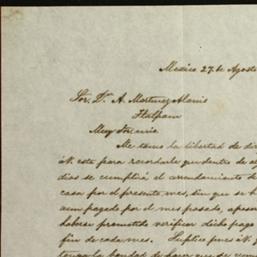 Mexico 27 de Agosto
Sor. Dr. A. Martinez Alanis
Tlalpam
Muy Sr. mio
Me tomo la libertad de dir
á V. esta para recordarle que dentro de al
dias se cumplirá el arrendamiento de
casa por el presente mes, sin que se h
aun pagado por el mes pasado, apesar
haberse prometido verificar dicho pago
fin de cada mes. Suplico pues á V.
tenga la bondad de hacer que se